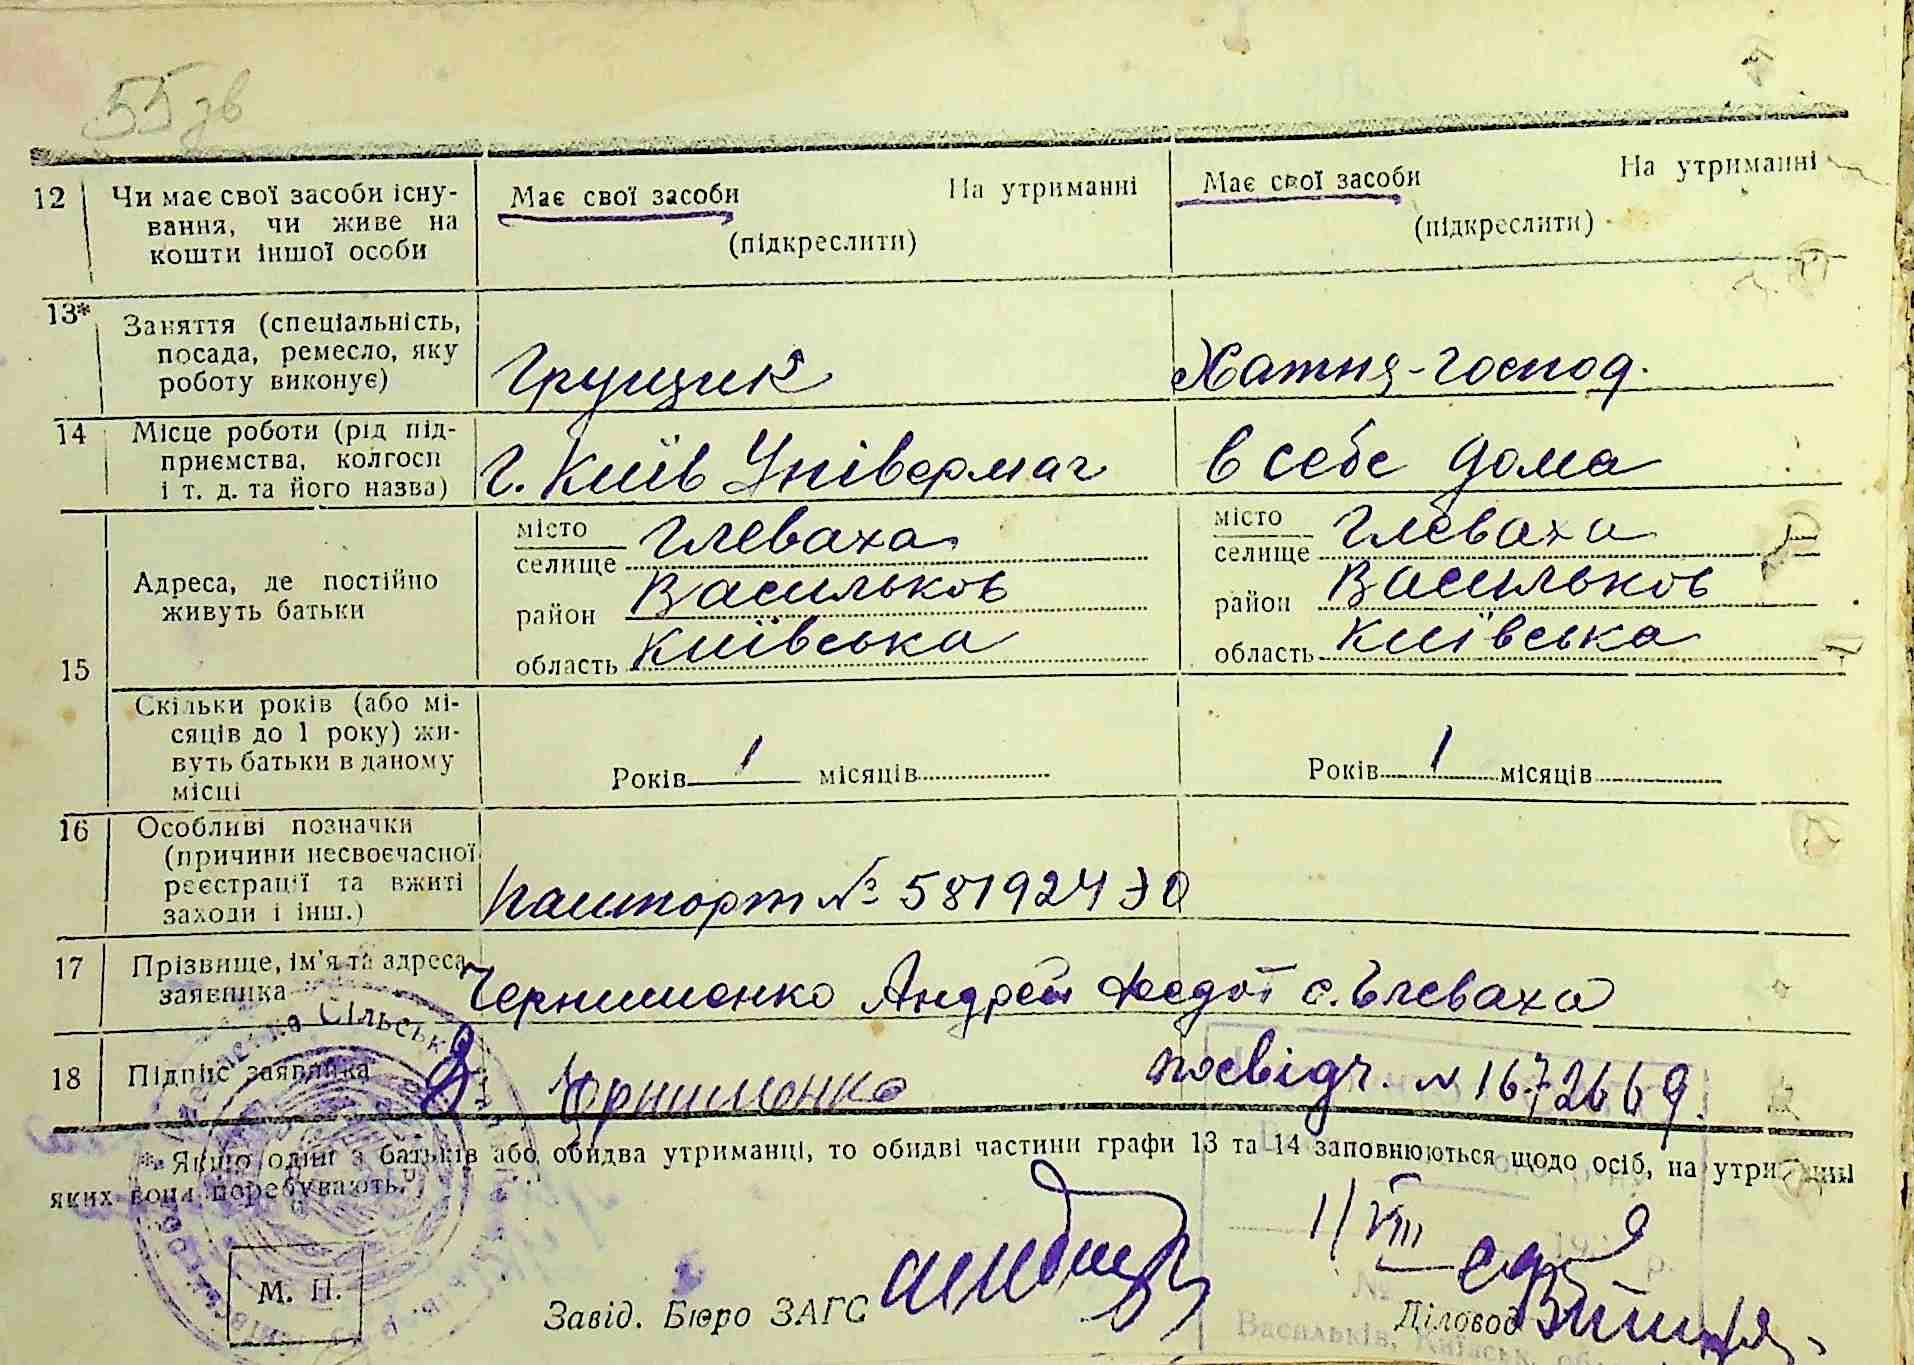 55 зв
12 Чи має свої засоби існу- Має свої засоби На утриманні Має свої засоби На утриманні
вання, чи живе на (підкреслити) (підкреслити)
кошти іншої особи
13* Заняття (спеціальність,
посада, ремесло, яку Грущик Хатня-господ.
роботу виконує)
14 Місце роботи (рід під-
приємства, колгосп г. Київ Універмаг в себе дома
і т. д. та його назва)
місто Глеваха місто Глеваха
селище селище
Адреса, де постійно район Васильков район Васильков
живуть батьки
область Київська область Київська
15
Скільки років (або мі-
сяців до 1 року) жи-
вуть батьки в даному Років 1 місяців Років 1 місяців
місці
16 Особливі позначки
(причини несвоєчасної
реєстрації та вжиті Пашпорт № 58192430
заходи і інш.)
17 Прізвище, ім'я та адреса Чернишенко Андрей с. Глеваха
заявника
18 Підпис заявника Чернишенко посвідч. N 1672669.
* Якщо один з батьків або обидва утриманці, то обидві частини графи 13 та 14 заповнюються щодо осіб, на утриманні
яких вони перебувають.
11/VIII
М. П. Завід. Бюро ЗАГС Діловод
Васильків,